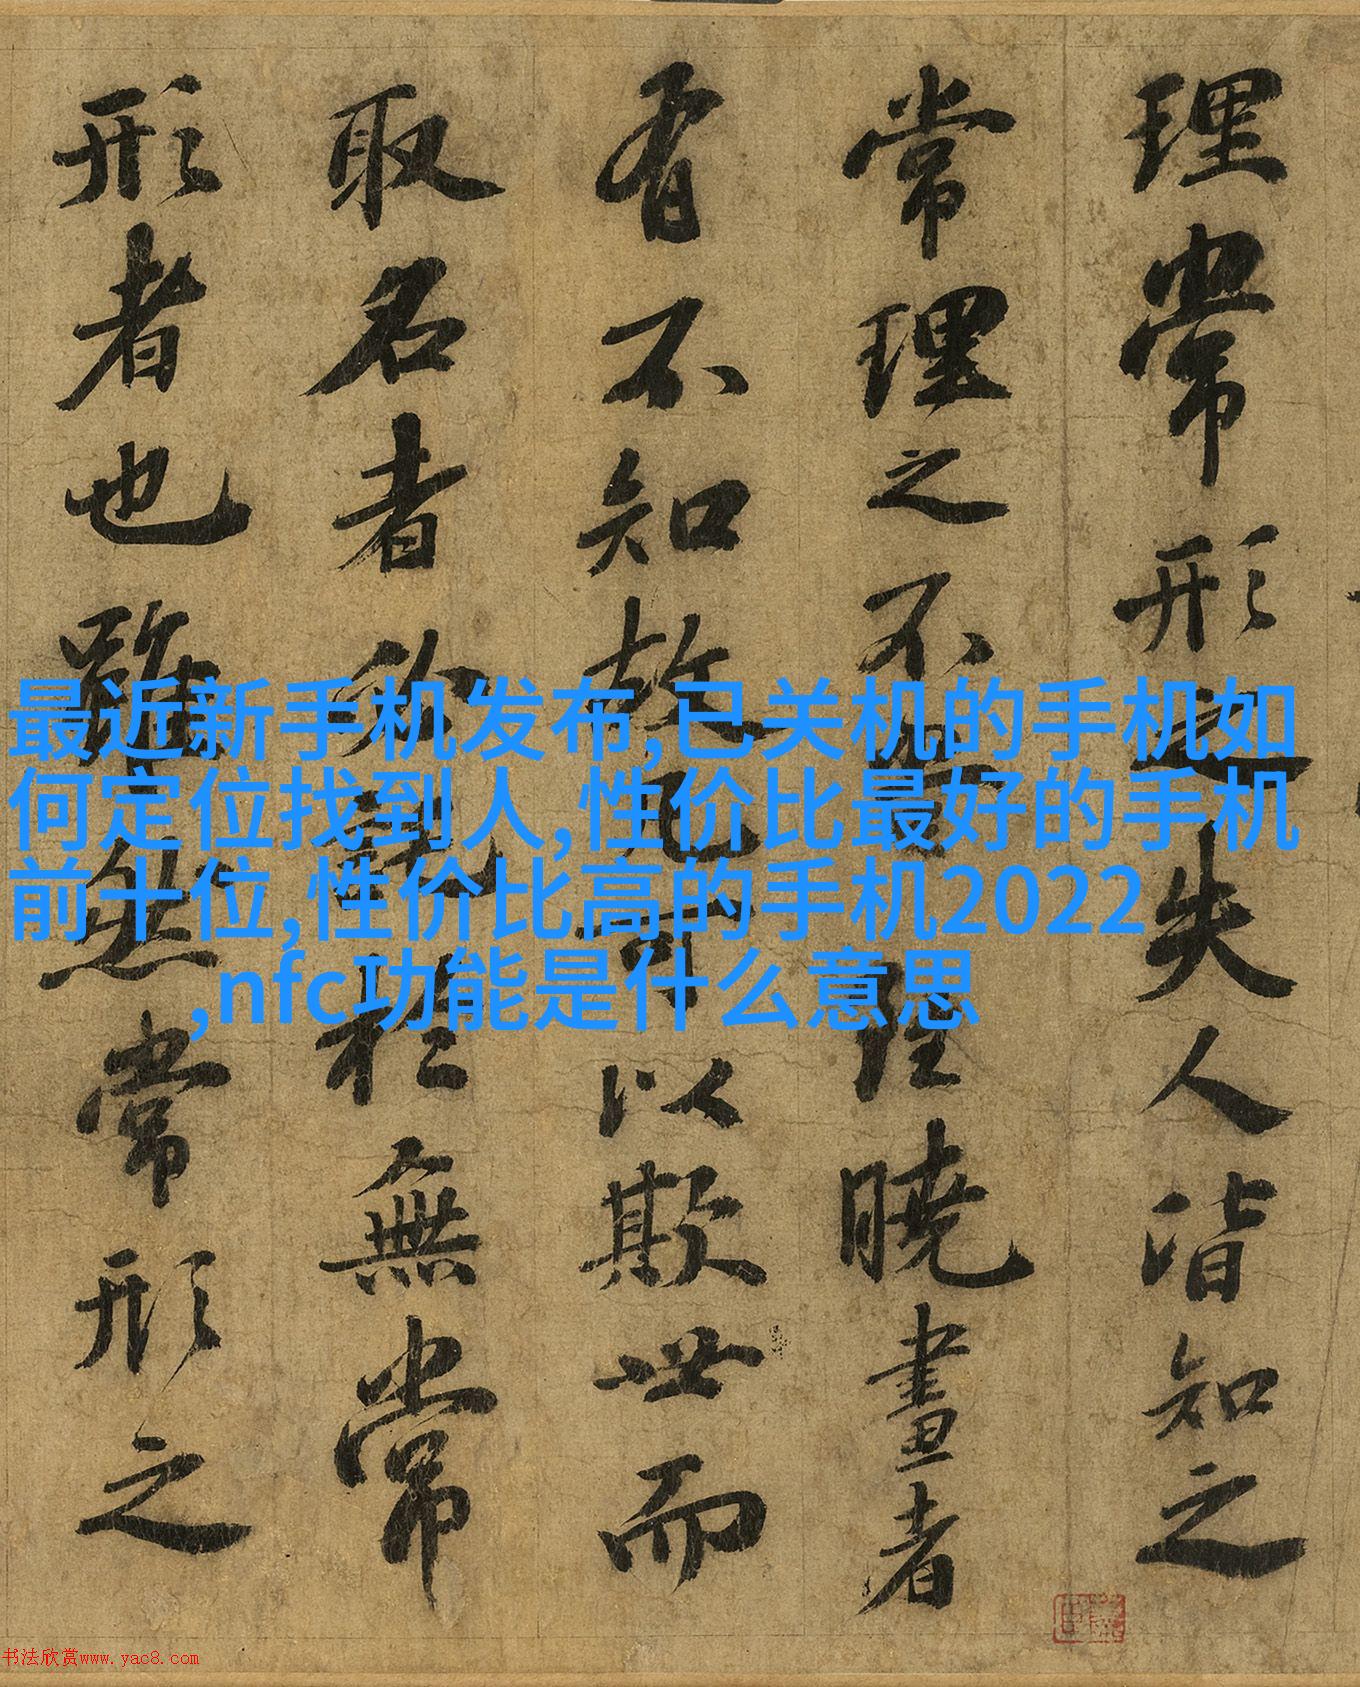 理常形之失人皆知之
常理之不當雖曉畫者
有不知故凡可以欺世而
取名者必託於無常
形者也雖然常形之
最近新手机发布,已关机的手机如
何定位找到人,性价比最好的手机
前十位,性价比高的手机2022
,nfc功能是什么意思
书法欣赏www.yac8.com